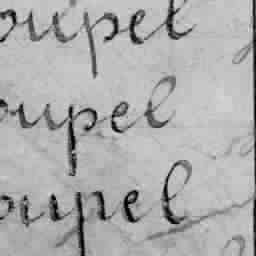 oupel
oupel
oupel